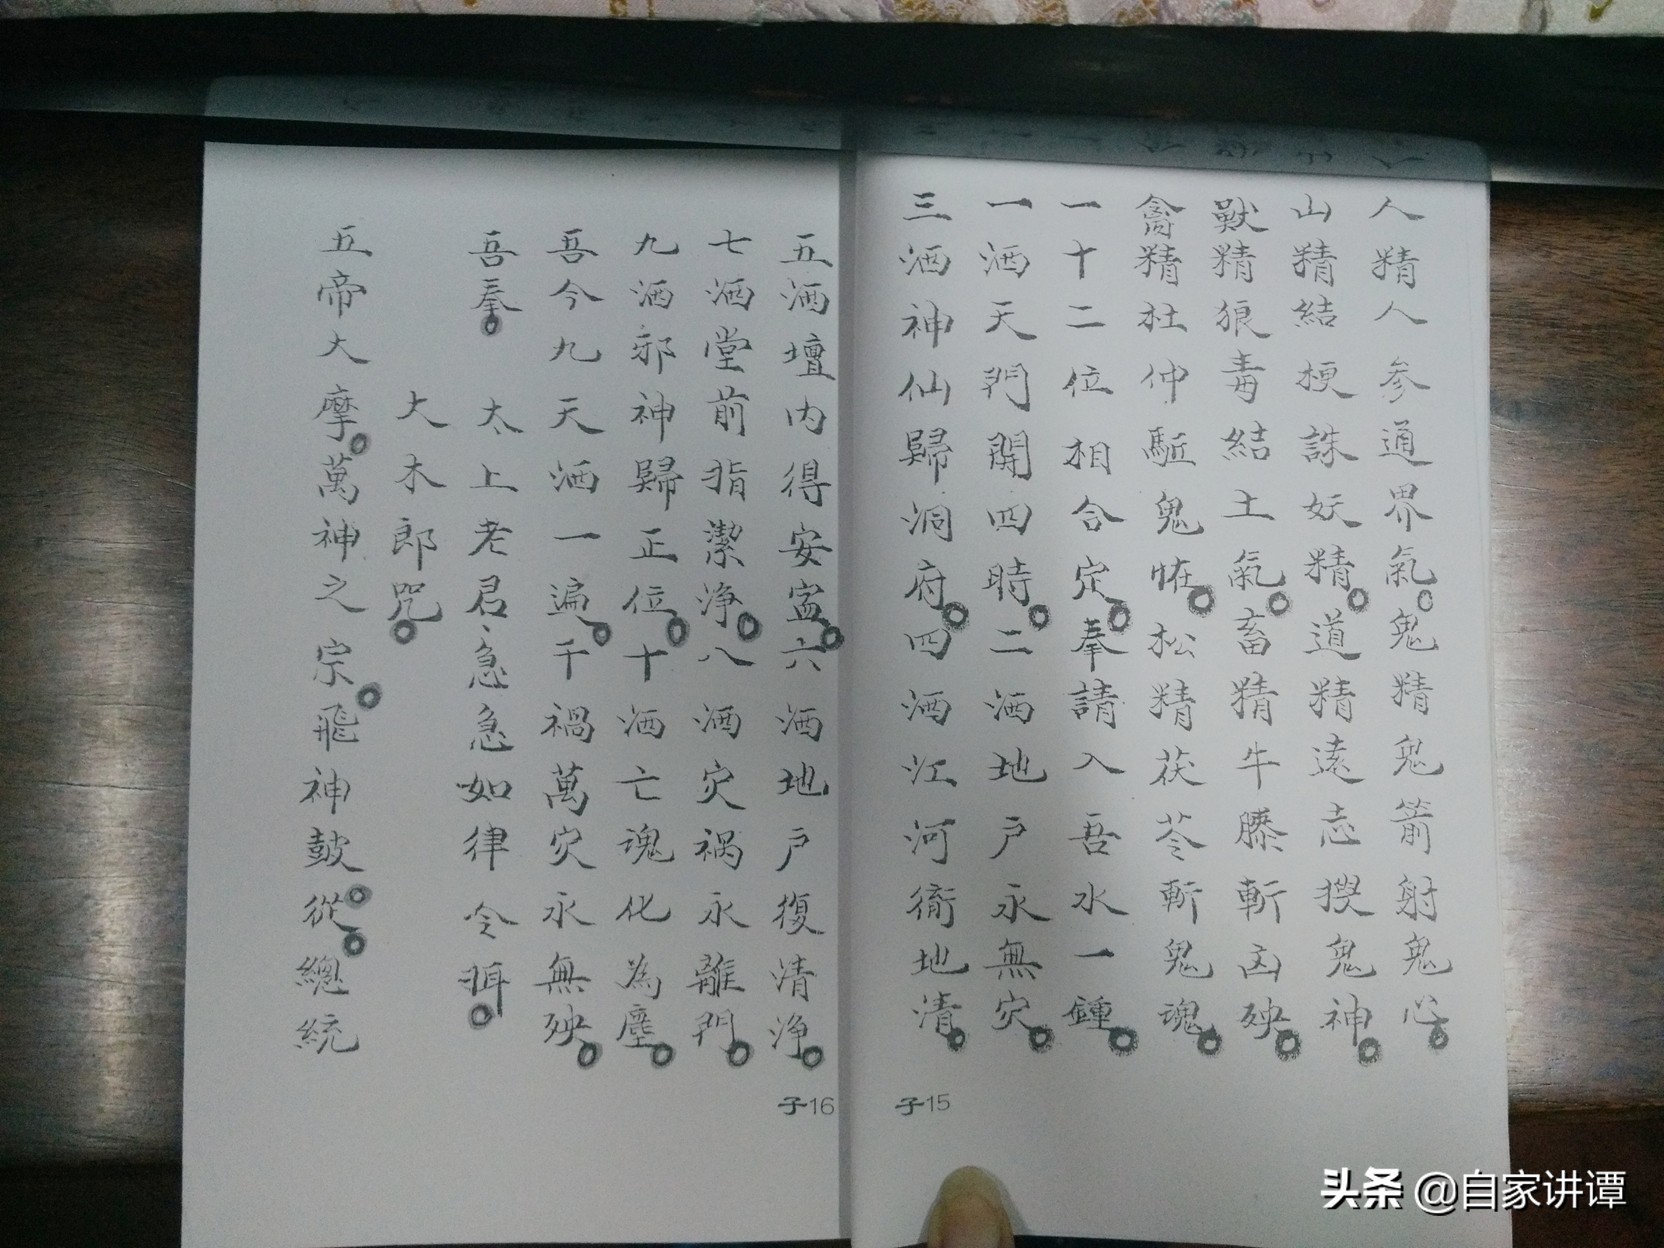 人精人参通界氣。鬼精鬼箭射鬼心。
山精結梗誅妖精。道精遠志搜鬼神。
獸精狼毒結土氣。畜精牛膝斬凶殃。
禽精杜仲駈鬼恠。松精茯苓斬鬼魂。
一十二位相合定。奉請入吾水一鍾。
一洒天門開四時。二洒地户永無灾。
三洒神仙歸洞府。四洒江河衛地清。
子15
五洒壇内得安寍。六洒地户復清浄。
七洒堂前指潔浄。八洒灾祸永離門。
九洒邪神歸正位。十洒亡魂化為塵。
吾今九天洒一遍。千禍萬灾永無殃。
吾奉。太上老君、急急如律令。
大木郎咒。
五帝大摩。萬神之宗。飛神鼓。從。總統
子16
头条 @自家讲谭